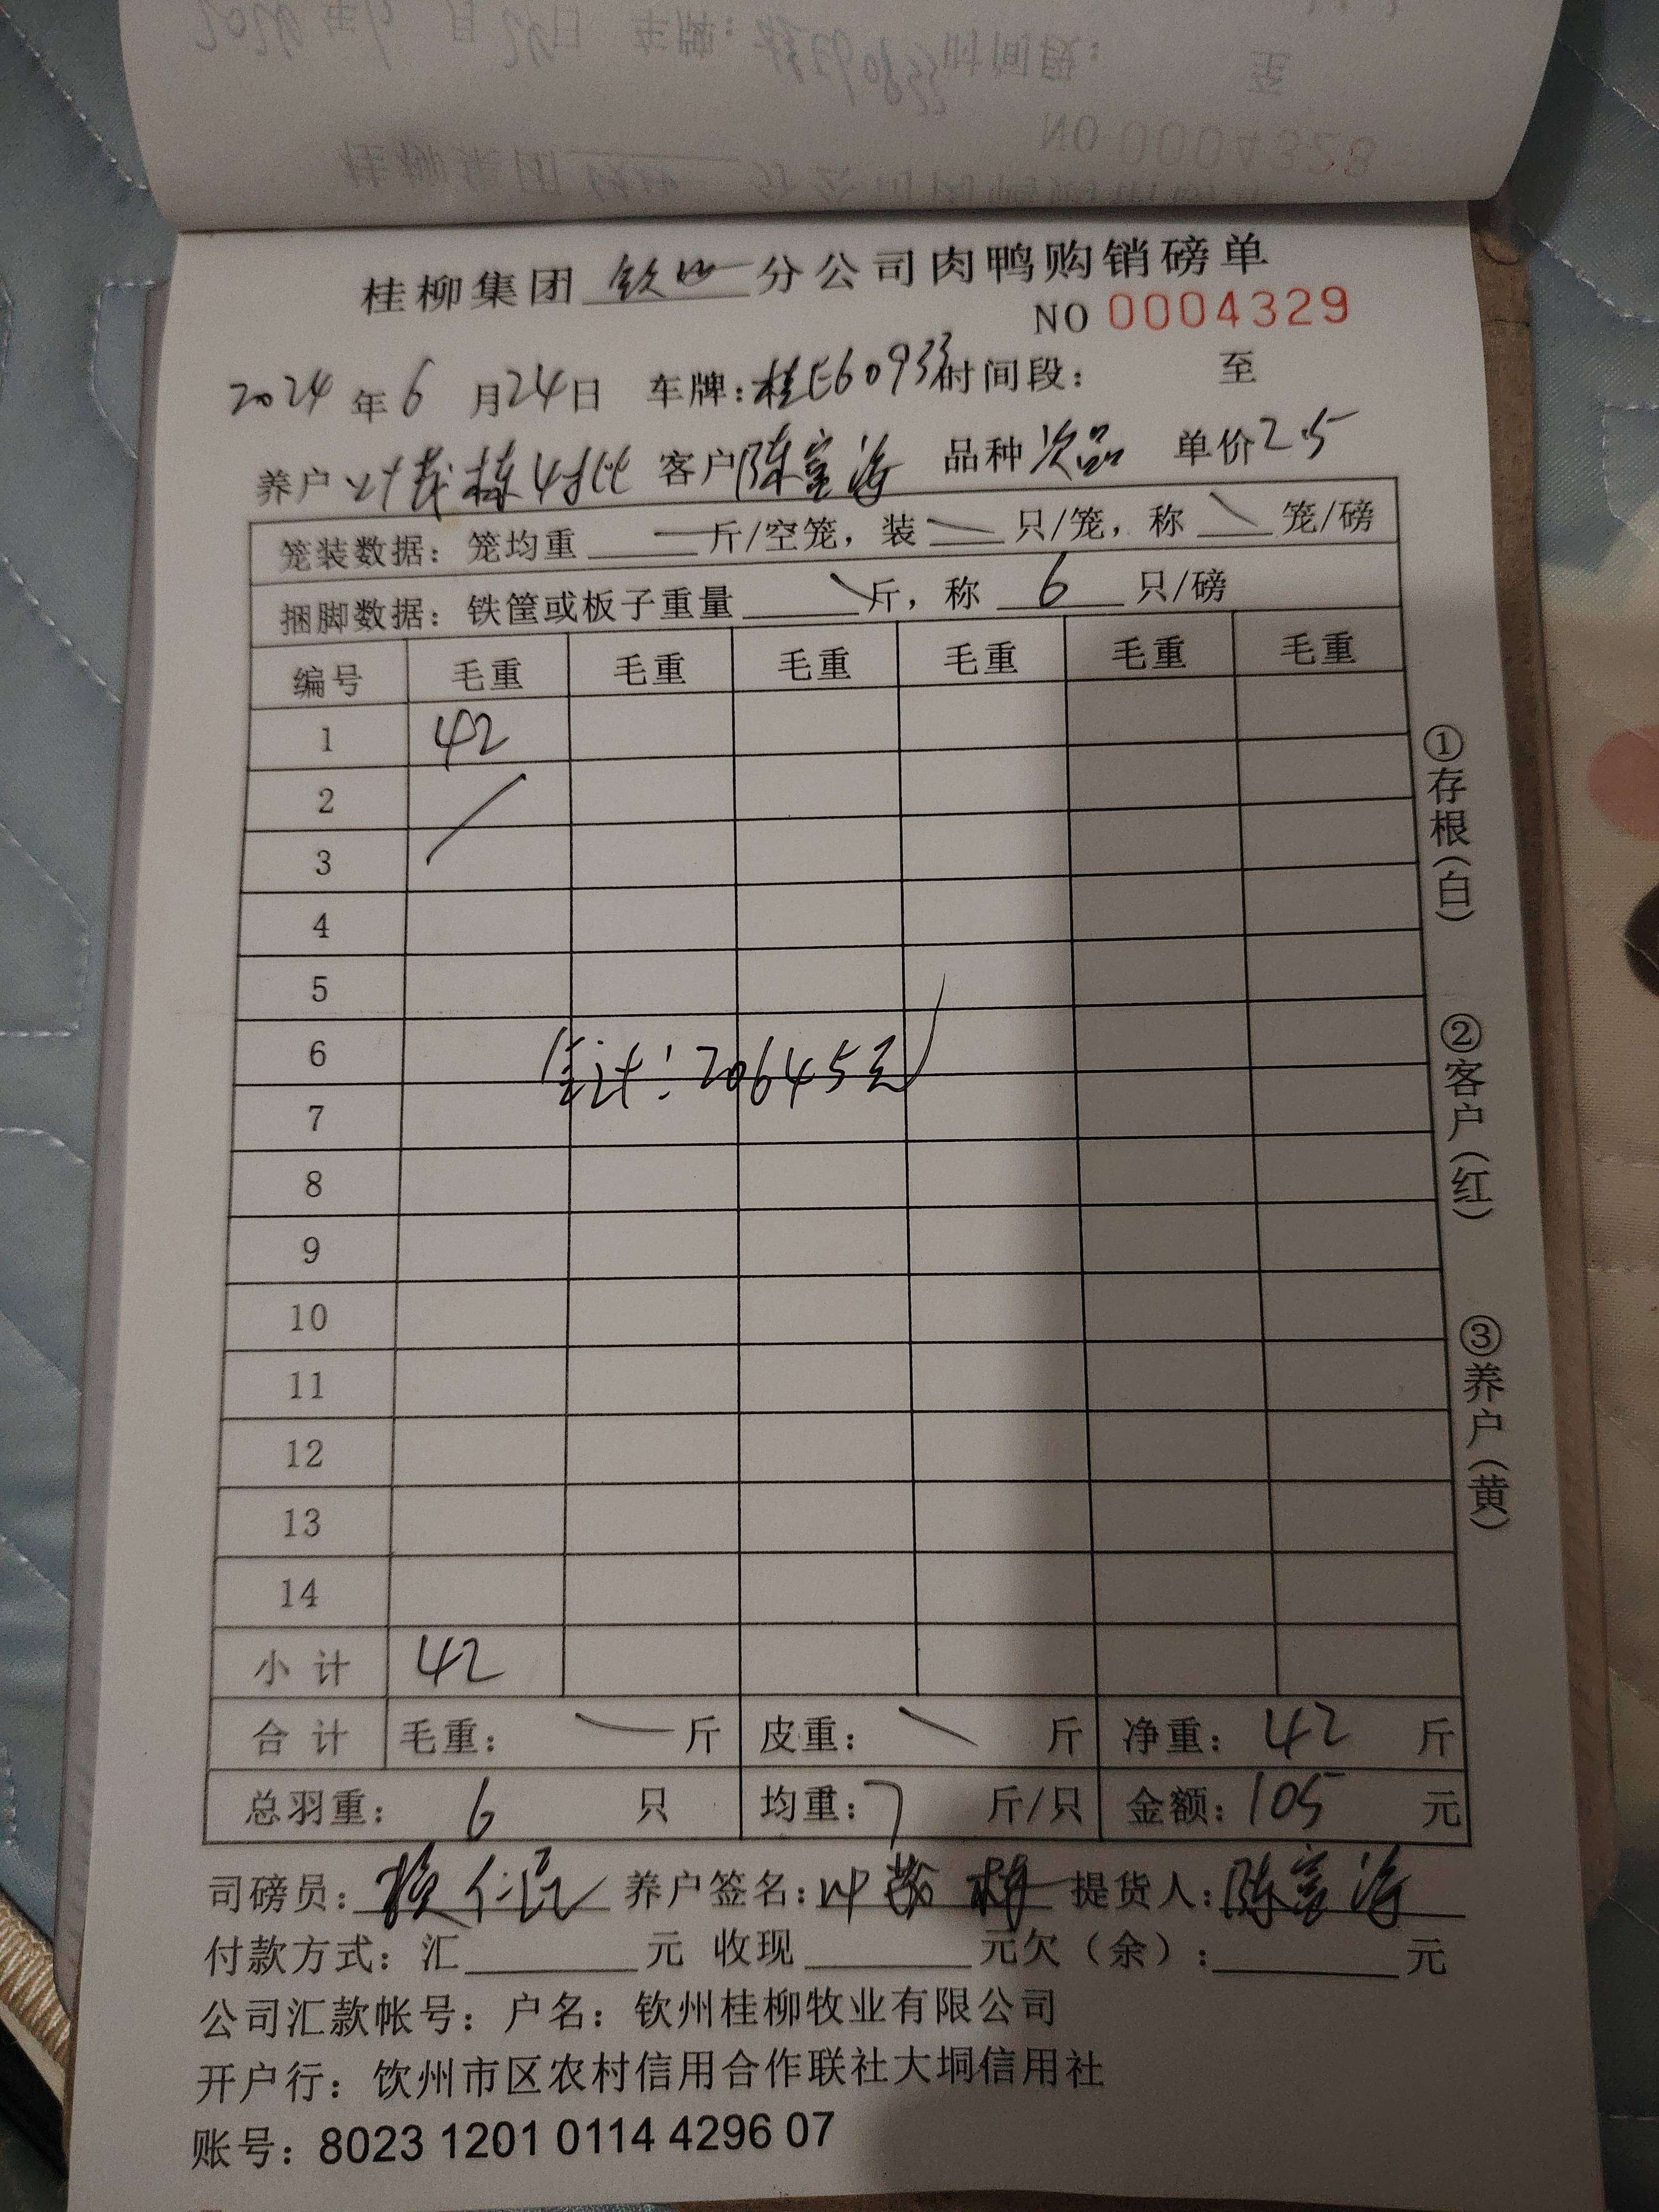 桂柳集团 钦州 分公司肉鸭购销磅单
NO 0004329
2024 年 6 月 24 日 车牌: 桂E60933 时间段: 至
养户 叶茂栋 客户 陈富海 品种 次品 单价 2.5
笼装数据: 笼均重 — 斤/空笼, 装 — 只/笼, 称 \ 笼/磅
捆脚数据: 铁筐或板子重量 \ 斤, 称 6 只/磅
编号 毛重 毛重 毛重 毛重 毛重 毛重
1 42
2
3
4
5
6
合计: 20645元
7
8
9
10
11
12
13
14
小 计 42
合 计 毛重: — 斤 皮重: \ 斤 净重: 42 斤
总羽重: 6 只 均重: 7 斤/只 金额: 105 元
司磅员: 养户签名: 叶茂栋 提货人: 陈富海
付款方式: 汇 元 收现 元欠(余): 元
公司汇款帐号: 户名: 钦州桂柳牧业有限公司
开户行: 钦州市区农村信用合作联社大垌信用社
账号: 8023 1201 0114 4296 07
①存根(白)
②客户(红)
③养户(黄)